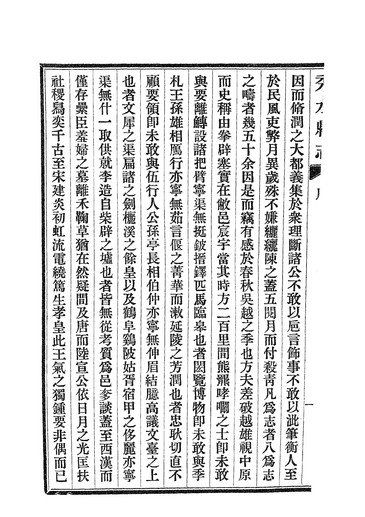 因而脩潤之大都義集於衆理斷諸公不敢以巵言飾事不敢以訿筆衡人至
於民風吏弊月異歲殊不嫌纚纚陳之蓋五閱月而付殺靑凡爲志者八爲志
之疇者幾五十余因是而竊有感於春秋吳越之季也方夫差破越雄視中原
而史稱由拳辟塞實在敝邑宸宇當其時方二百里間熊羆哮嚻之士卽未敢
與要離鱄設諸把臂寧渠無挺鈹搢鐸匹馬臨皋也者閎覽博物卽未敢與季
札王孫雄相馮行亦寧無茹言偃之菁華而漱延陵之芳潤也者忠耿切直不
顧要領卽未敢與伍行人公孫亭長相伯仲亦寧無伸眉結臆高議文臺之上
也者文犀之渠扁諸之劍欐溪之餘皇以及鶴阜鷄陂姑胥宿甲之侈麗亦寧
渠無什一取供就李造自柴辟之墟也者皆無從考質爲邑乗談蓋至西漢而
僅存纍臣羞婦之墓離禾鞠草猶在然疑間及唐而陸宣公依日月之光匡扶
社稷舄奕千古至宋建炎初虹流電繞篤生孝皇此王氣之獨鍾要非偶而已
一